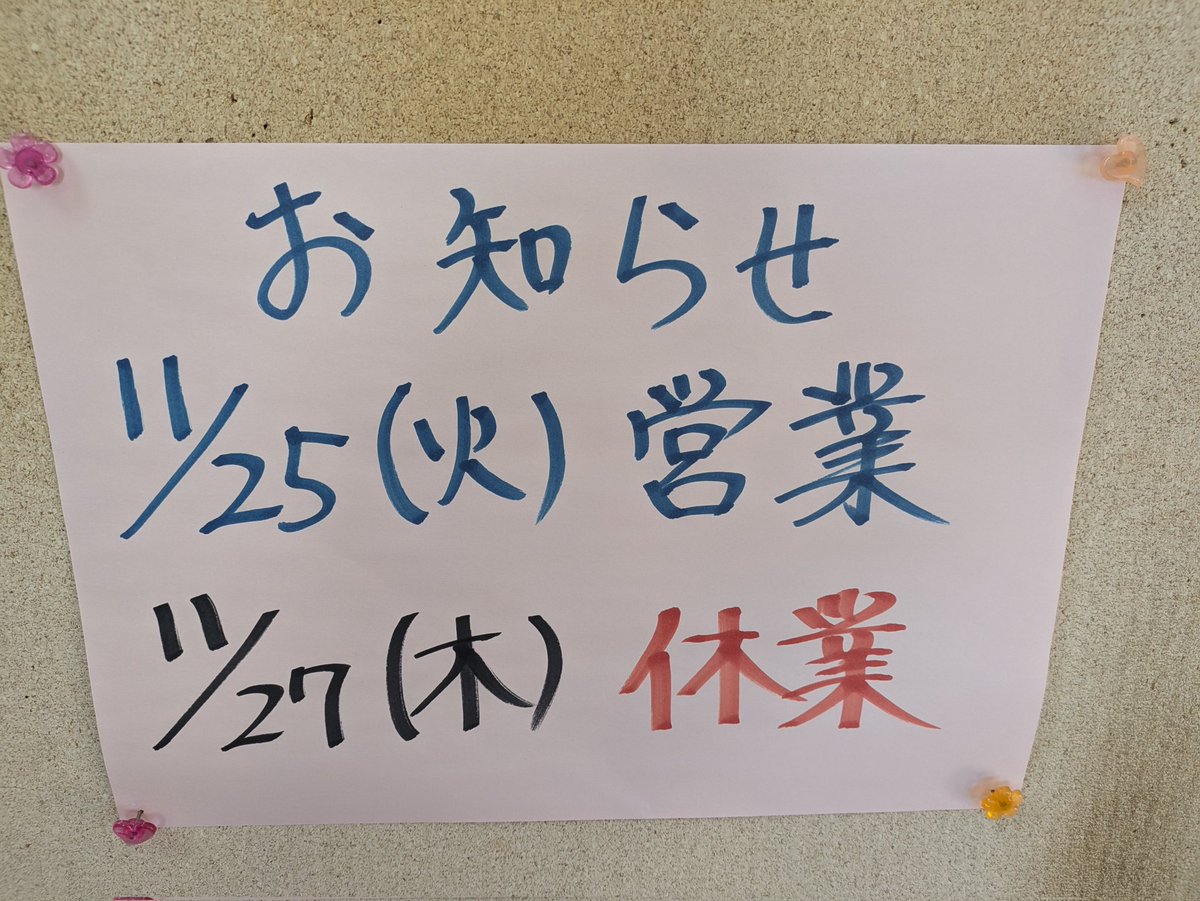 お知らせ
11/25(火)営業
11/27(木)休業